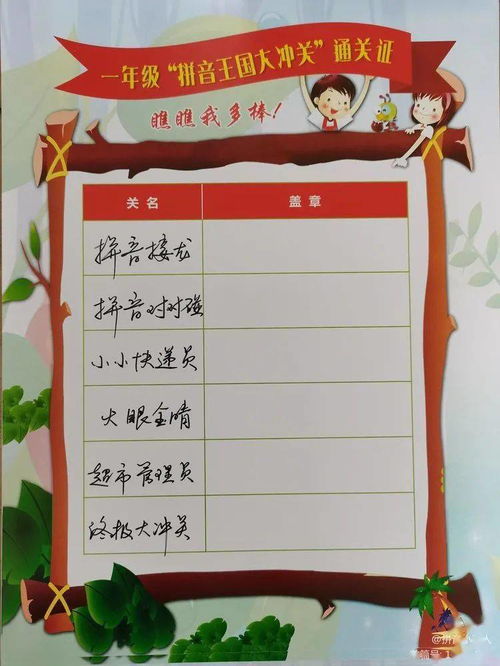 一年级“拼音王国大冲关”通关证
瞧瞧我多棒!
关名 盖章
拼音接龙
拼音对对碰
小小快递员
火眼金睛
超市管理员
终极大冲关